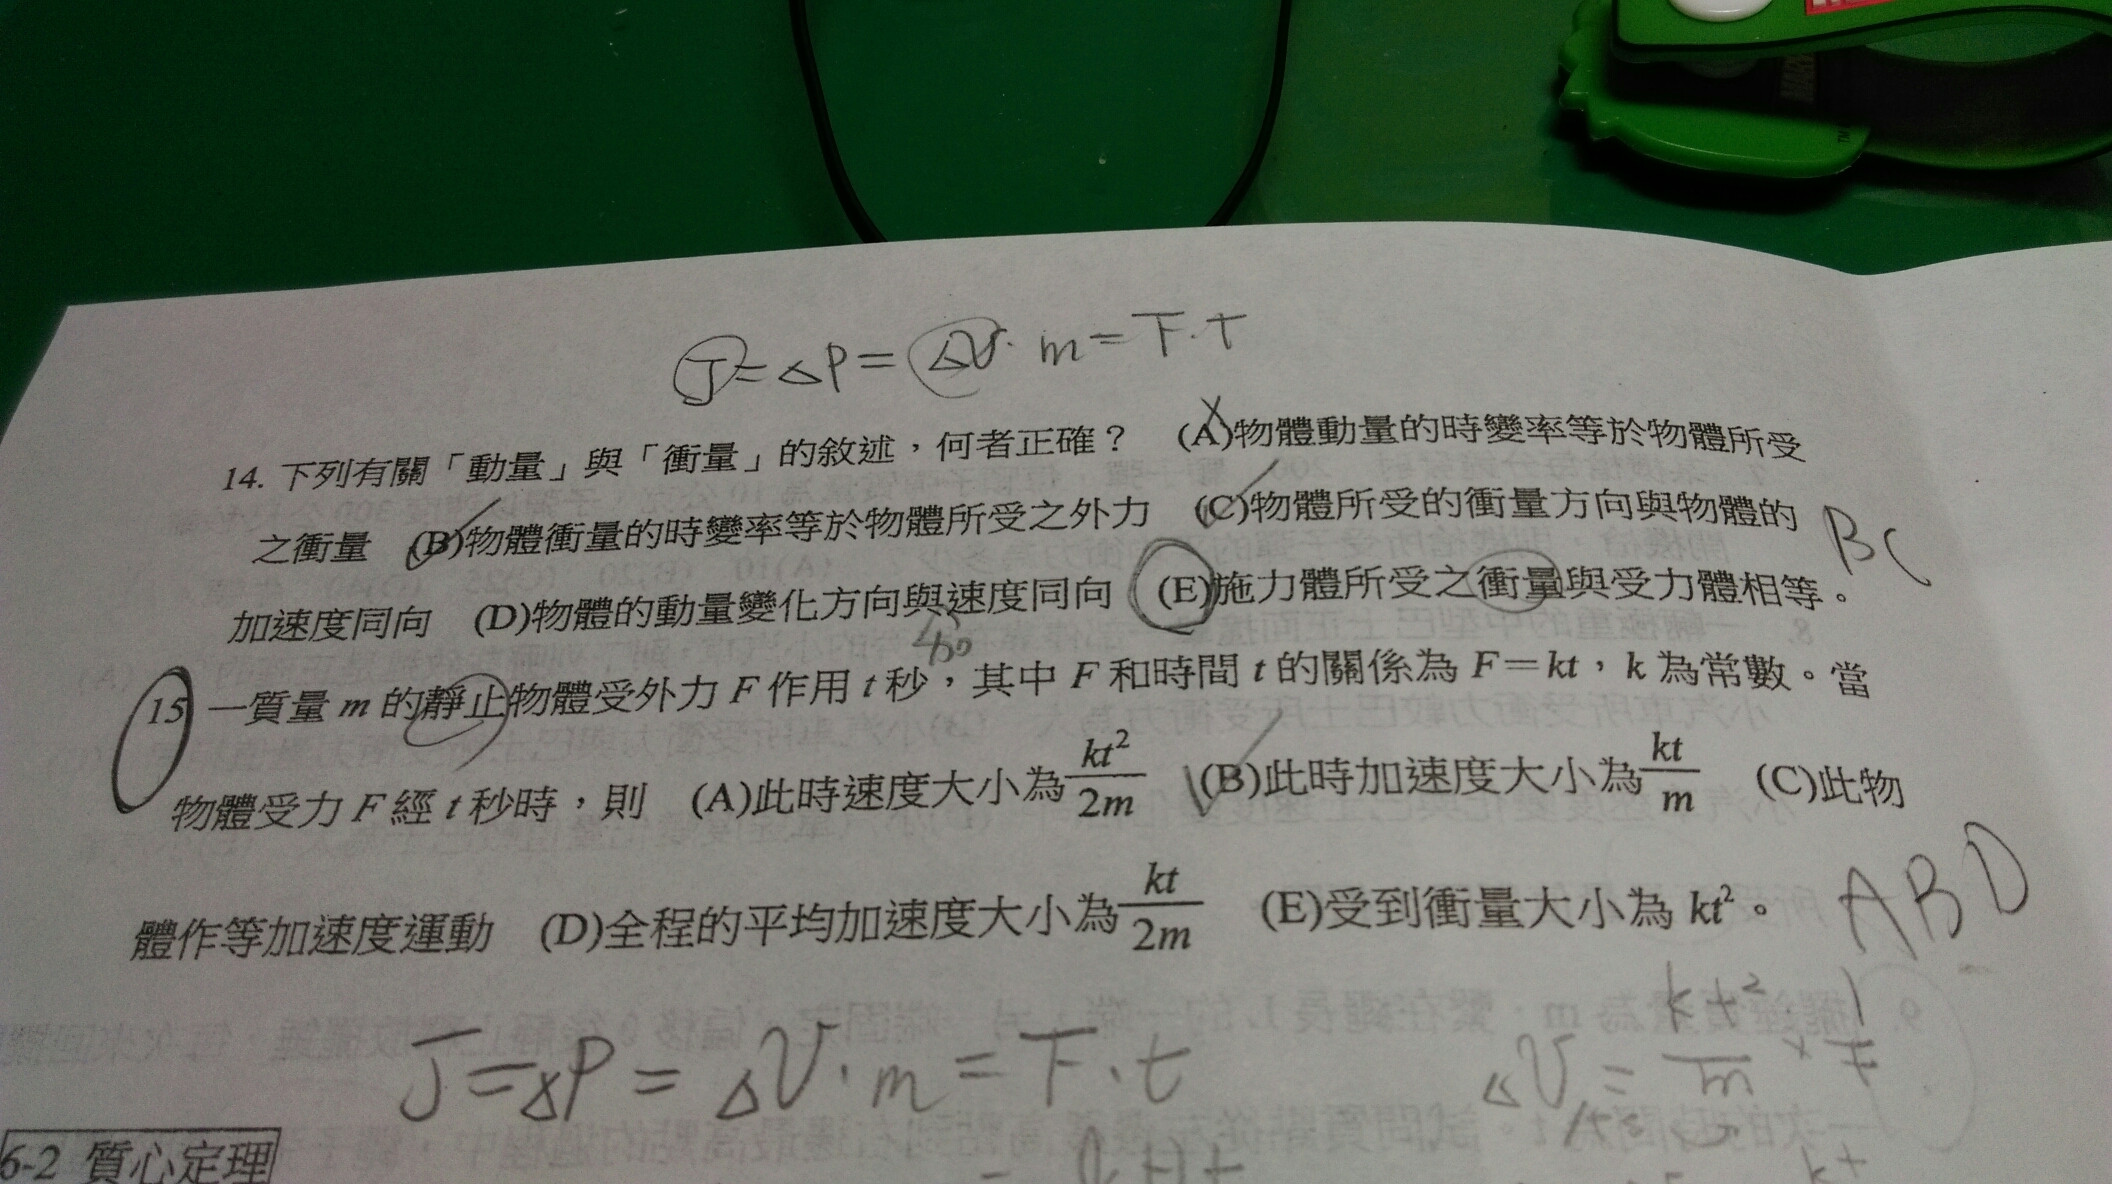 J=△P=△V·m=F·t
14. 下列有關「動量」與「衝量」的敘述，何者正確？ (A)物體動量的時變率等於物體所受
之衝量 (B)物體衝量的時變率等於物體所受之外力 (C)物體所受的衝量方向與物體的
BC
加速度同向 (D)物體的動量變化方向與速度同向 (E)施力體所受之衝量與受力體相等。
15 一質量 m 的靜止物體受外力 F 作用 t 秒，其中 F 和時間 t 的關係為 F=kt，k 為常數。當
物體受力 F 經 t 秒時，則 (A)此時速度大小為 kt²/2m (B)此時加速度大小為 kt/m (C)此物
體作等加速度運動 (D)全程的平均加速度大小為 kt/2m (E)受到衝量大小為 kt²。
ABD
J=△P=△V·m=F·t
6-2 質心定理